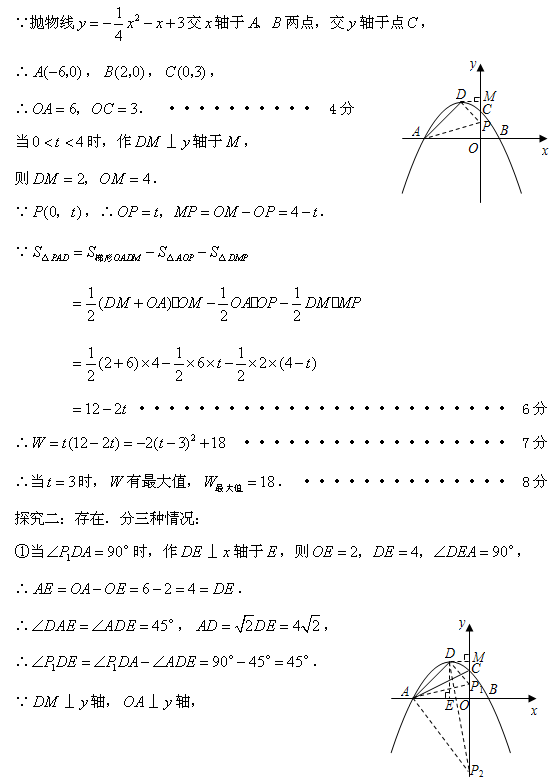 ∵抛物线 y = -\frac{1}{4}x² - x + 3 交 x 轴于 A、B 两点，交 y 轴于点 C，
∴ A(-6,0)，B(2,0)，C(0,3)，
∴ OA = 6，OC = 3． •••••••••• 4分
当 0 < t < 4 时，作 DM ⊥ y 轴于 M，
则 DM = 2，OM = 4．
∵ P(0，t)，∴ OP = t，MP = OM - OP = 4 - t．
∵ S_{△PAD} = S_{梯形OADM} - S_{△AOP} - S_{△DMP}
= \frac{1}{2}(DM + OA)□OM - \frac{1}{2}OA□OP - \frac{1}{2}DM□MP
= \frac{1}{2}(2+6)×4 - \frac{1}{2}×6×t - \frac{1}{2}×2×(4-t)
= 12 - 2t •••••••••••••••••••••••••• 6分
∴ W = t(12 - 2t) = -2(t - 3)² + 18 ••••••••••••••••••• 7分
∴当 t = 3 时，W 有最大值，W_{最大值} = 18． ••••••••••••••• 8分
探究二：存在．分三种情况：
①当∠P₁DA = 90°时，作 DE ⊥ x 轴于 E，则 OE = 2，DE = 4，∠DEA = 90°，
∴ AE = OA - OE = 6 - 2 = 4 = DE．
∴∠DAE = ∠ADE = 45°，AD = √2DE = 4√2，
∴∠P₁DE = ∠P₁DA - ∠ADE = 90° - 45° = 45°．
∵ DM ⊥ y 轴，OA ⊥ y 轴，
y
D
M
C
P
A
B
O
x
y
D
M
C
P₁
A
B
E
O
x
P₂